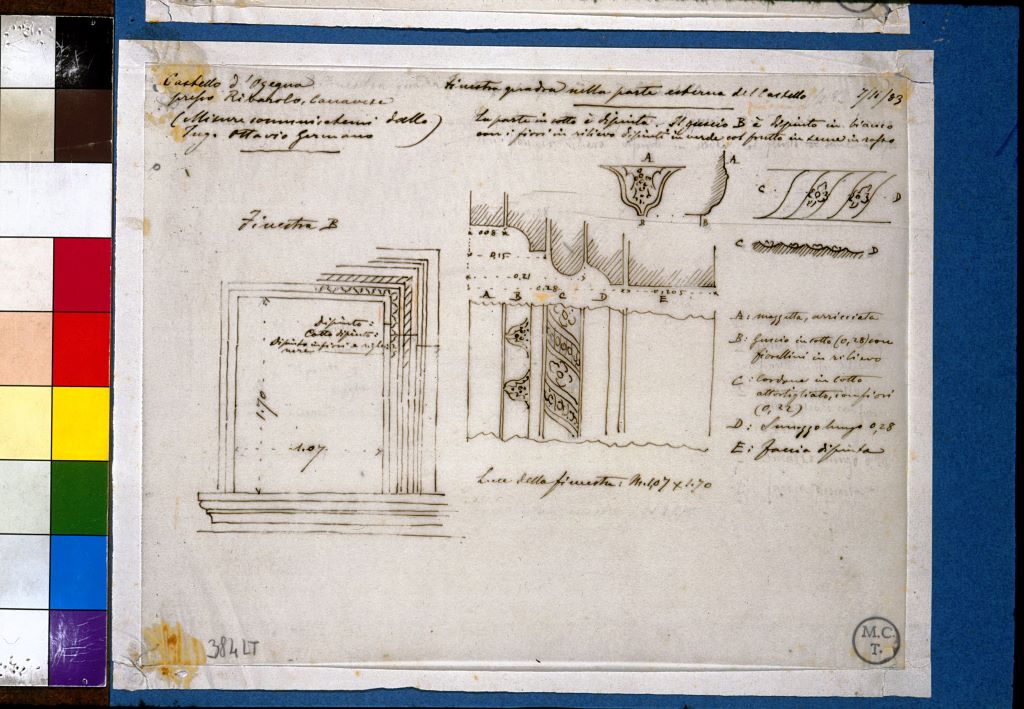 Castello d'Ozegna
presso Rivarolo, Canavese
(Misure comunicatemi dallo)
Ing. Ottavio Germano
Finestra quadra nella parte esterna del Castello
7/10/83
La parte in cotto è dipinta. Il guscio B è dipinto in bianco
con i fiori in rilievo dipinti in verde col frutto in cuore in rosso
A
A
B
B
C
D
C
D
Finestra B
008
0,15
0,21
0,28
0,205
A B C D E
Dipinto:
Cotto dipinto:
Dipinto in fiori e
nere
1.70
1.07
A: mazzetta, arricciata
B: Guscio in cotto (0,28) con
fiorellini in rilievo
C: Cordone in cotto
attortigliato, con fiori
(0,22)
D: lungo 0,28
E: Fascia dipinta
Luce della finestra: M. 1,07 x 1.70
384 LT
M.C.
T.